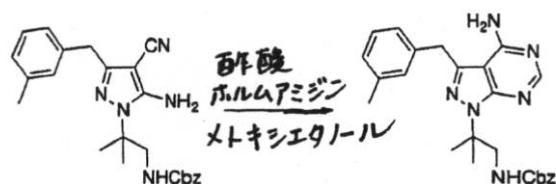 CN
N
N
NH₂
NHCbz
酢酸
ホルムアミジン
メトキシエタノール
H₂N
N
N
N
N
NHCbz